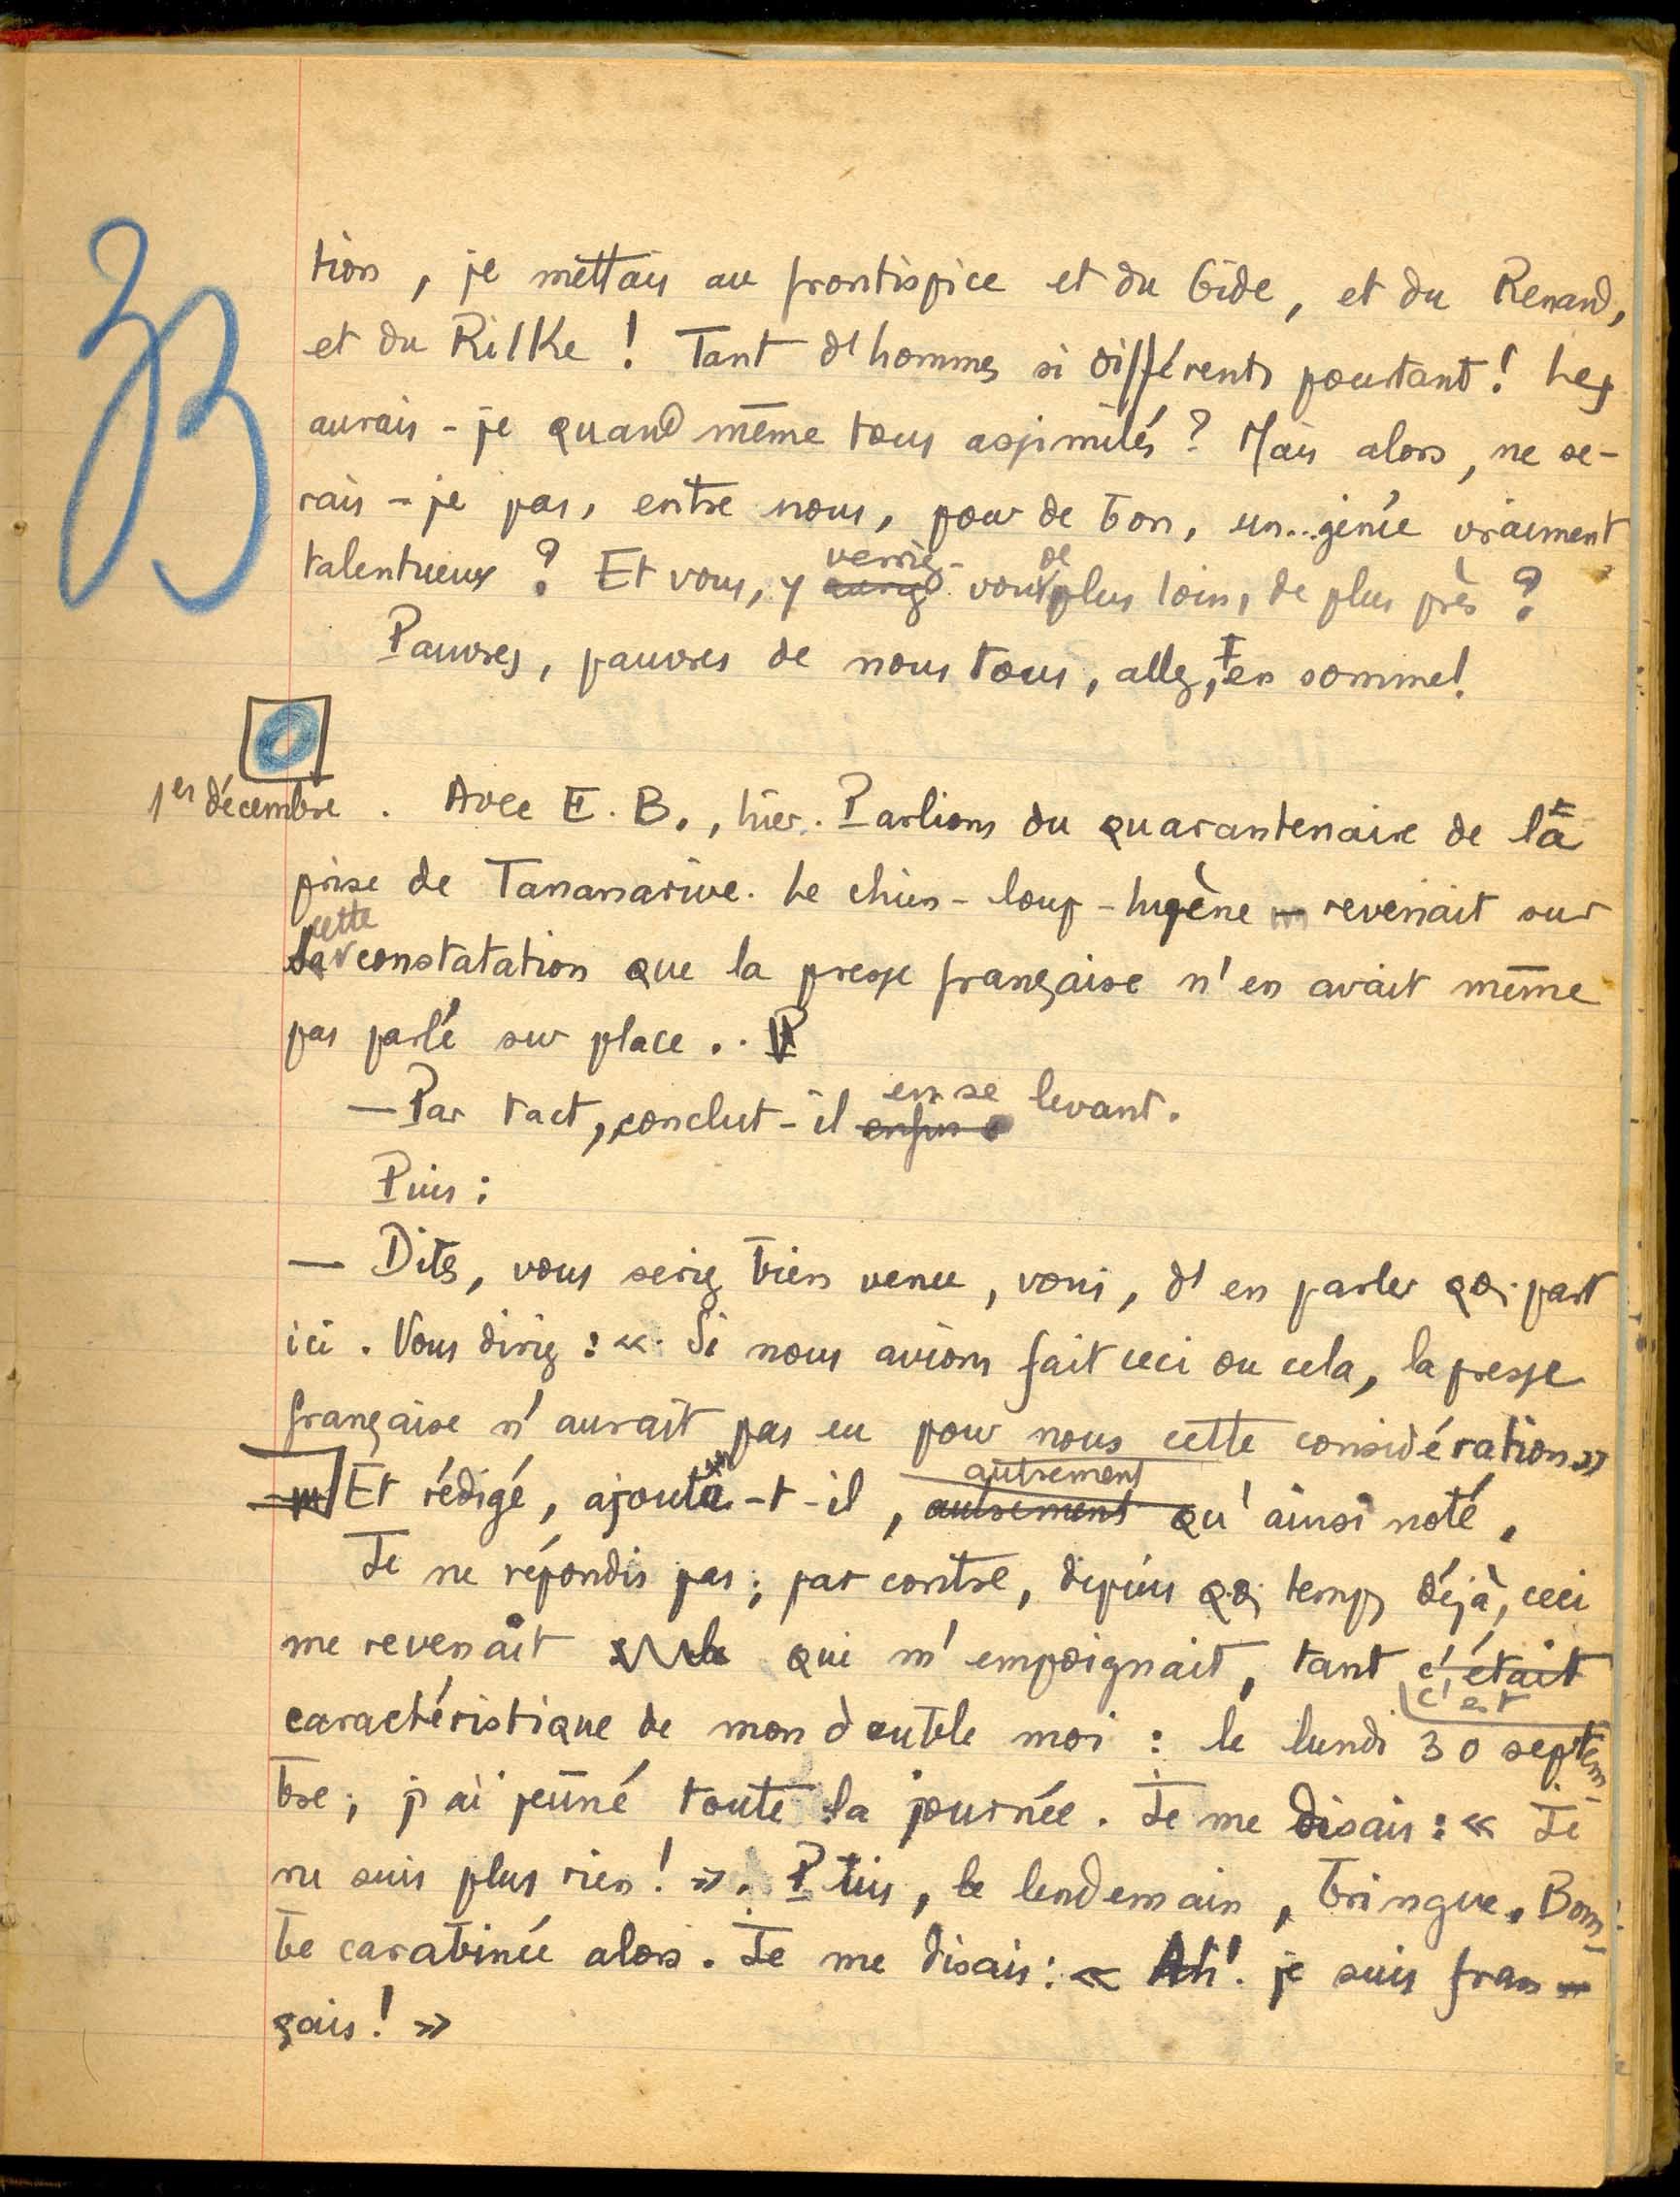 33
tion, je mettais au frontispice et du Gide, et du Renard,
et du Rilke ! Tant d'hommes si différents pourtant ! Les
aurais-je quand même tous assimilés ? Mais alors, ne se-
rais-je pas, entre nous, pour de bon, un... génie vraiment
talentueux ? Et vous, y verriez-vous de plus loin, de plus près ?
Pauvres, pauvres de nous tous, allez, en somme !
1er décembre. Avec E. B., hier. Parlions du quarantenaire de la
prise de Tananarive. Le chien-loup-hyène revenait sur
cette constatation que la presse française n'en avait même
pas parlé sur place..
— Par tact, conclut-il en se levant.
Puis :
— Dites, vous seriez bien venu, vous, d'en parler qq. part
ici. Vous diriez : « Si nous avions fait ceci ou cela, la presse
française n'aurait pas eu pour nous cette considération »
Et rédigé, ajouta-t-il, autrement qu'ainsi noté.
Je ne répondis pas ; par contre, depuis qq. temps déjà, ceci
me revenait qui m'empoignait, tant c'est
caractéristique de mon double moi : le lundi 30 septem-
bre, j'ai jeûné toute la journée. Je me disais : « Je
ne suis plus rien ! ». Puis, le lendemain, bringue. Bom-
be carabinée alors. Je me disais : « Ah ! je suis fran-
çais ! »